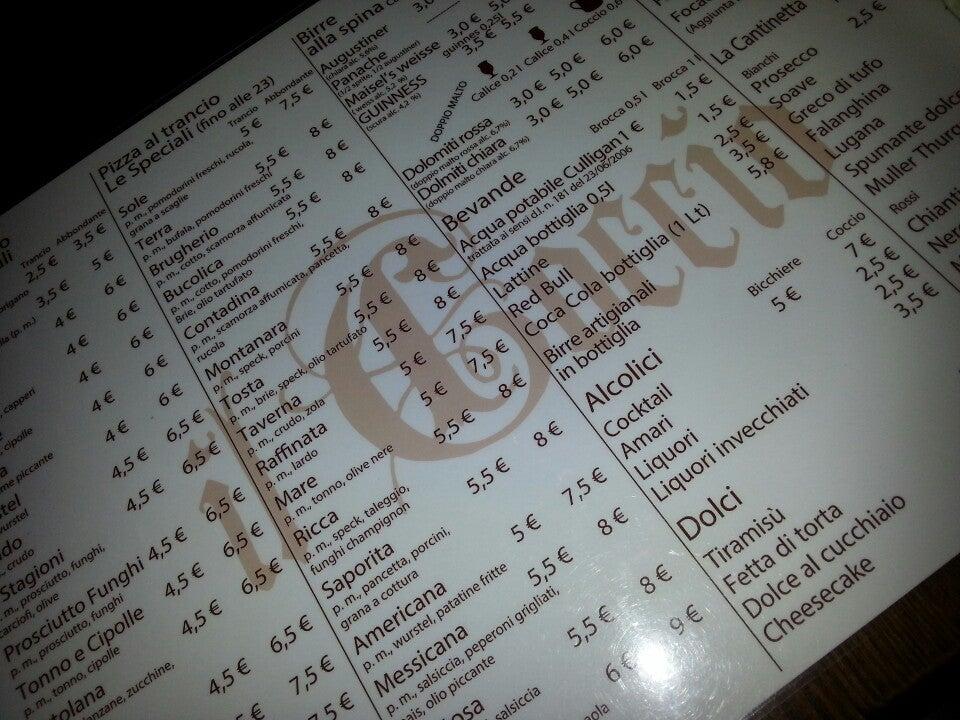 Trancio Abbondante
2,5 € 3,5 €
3,5 € 5 €
4 € 6 €
4 € 6 €
capperi 4 € 6 €
cipolle 4 € 6 €
piccante 4,5 € 6,5 €
wurstel 4,5 € 6,5 €
crudo
Stagioni
p. m., prosciutto, funghi,
carciofi, olive
Prosciutto Funghi 4,5 € 6,5 €
p. m., prosciutto, funghi
Tonno e Cipolle 4,5 € 6,5 €
p. m., tonno, cipolle
4,5 € 6,5 €
zucchine,
Pizza al trancio
Le Speciali (fino alle 23)
Trancio Abbondante
Sole 5 € 7,5 €
p. m., pomodorini freschi, rucola,
grana a scaglie
Terra 5,5 € 8 €
p. m., bufala, pomodorini freschi
Brugherio 5,5 € 8 €
p. m., cotto, scamorza affumicata
Bucolica 5,5 € 8 €
p. m., cotto, pomodorini freschi,
Brie, olio tartufato
Contadina 5,5 € 8 €
p. m., scamorza affumicata, pancetta,
rucola
Montanara 5,5 € 8 €
p. m., speck, porcini
Tosta 5,5 € 8 €
p. m., brie, speck, olio tartufato
Taverna 5,5 € 8 €
p. m., crudo, zola
Raffinata 5 € 7,5 €
p. m., lardo
Mare 5 € 7,5 €
p. m., tonno, olive nere
Ricca 5,5 € 8 €
p. m., speck, taleggio,
funghi champignon
Saporita 5,5 € 8 €
p. m., pancetta, porcini,
grana a cottura
Americana 5 € 7,5 €
p. m., wurstel, patatine fritte
Messicana 5,5 € 8 €
p. m., salsiccia, peperoni grigliati,
mais, olio piccante
5,5 € 8 €
salsiccia
6 € 9 €
Birre
alla spina
Augustiner 3,0 €
(chiara alc. 5,6%)
Panache
(1/2 sprite, 1/2 augustiner)
Maisel's weisse 3,0 €
(weiss alc. 5,2 %) guinnes 0,25l
GUINNESS 3,5 € 5,5 €
(scura alc. 4,2 %)
DOPPIO MALTO
Calice 0,2 l Calice 0,4 l Coccio 0,6
Dolomiti rossa 3,0 € 5,0 € 6,0 €
(doppio malto rossa alc. 6,7%)
Dolmiti chiara 3,0 € 5,0 € 6,0 €
(doppio malto chiara alc. 6,7%)
Bevande
Brocca 0,5 l Brocca 1 l
Acqua potabile Culligan 1 € 1,5 €
trattata ai sensi d.l. n. 181 del 23/06/2006
Acqua bottiglia 0,5l 1,5 €
Lattine 2,5 €
Red Bull 3,5 €
Coca Cola bottiglia (1 Lt) 5,8 €
Birre artigianali
in bottiglia
Bicchiere Coccio
Alcolici
Cocktail 5 € 7 €
Amari 2,5 €
Liquori 2,5 €
Liquori invecchiati 3,5 €
Dolci
Tiramisù
Fetta di torta
Dolce al cucchiaio
Cheesecake
(Aggiunta
2,5 €
La Cantinetta
Bianchi
Prosecco
Soave
Greco di tufo
Falanghina
Lugana
Spumante dolce
Muller Thurg
Rossi
Chianti
Nero
il Coccio